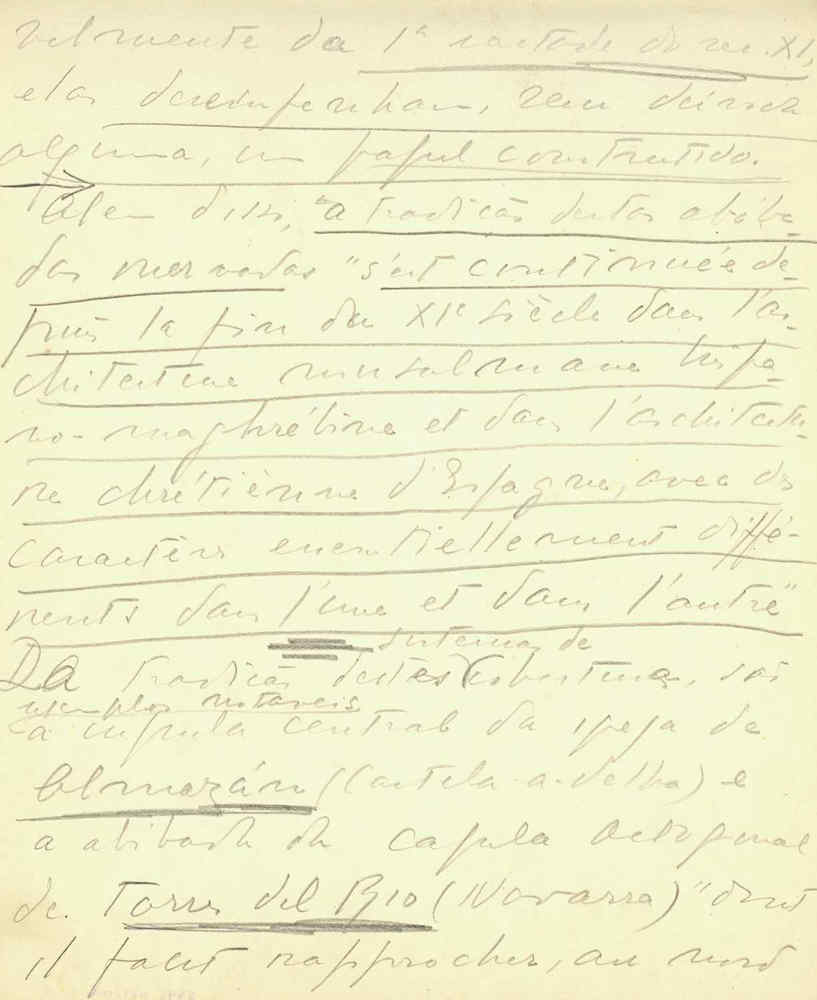 velmente da 1ª metade do sec. XI,
elas desempenham, sem dúvida
alguma, um papel construtivo.
Alem disso, "a tradição destas abóba-
das nervadas "s'est continuée de-
puis la fin du XIe siècle dans l'ar-
chitecture musulmane hispa-
no-maghrébine et dans l'architectu-
re chrétienne d'Espagne, avec des
caractères essentiellement diffé-
rents dans l'une et dans l'autre"
sistemas de
Da tradição destes (coberturas, são
exemplos notaveis
a cupula central da igreja de
Almazán (Castela-a-Velha) e
a abóbada da capela octogonal
de Torres del Rio (Navarra) "dont
il faut rapprocher, au nord